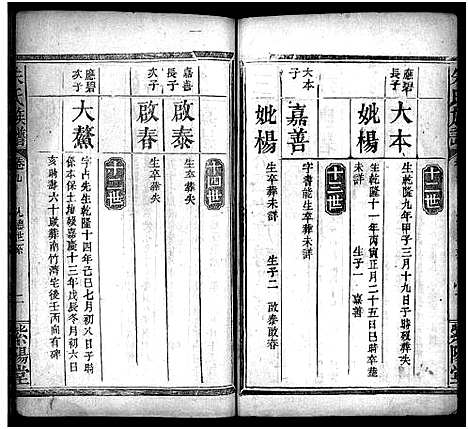 十二世
應碧長子
大本
生乾隆九年甲子三月十九日子時歿葬失
妣楊
生乾隆十一年丙寅正月二十五日時卒葬
未詳
生子一
嘉善
十三世
大本子
嘉善
字書能生卒葬未詳
妣楊
生卒葬未詳
生子二
啟泰
啟春
十四世
嘉善長子
啟泰
生卒葬失
次子
啟春
生卒葬失
十二世
應碧次子
大鰲
字占先生乾隆十四年己巳七月初八日子時
係本保士地嶺嘉慶十三年戊辰冬月初六日
亥時壽六十歲葬南竹灣宅後壬丙向有碑
朱氏族譜
卷九
紫陽堂